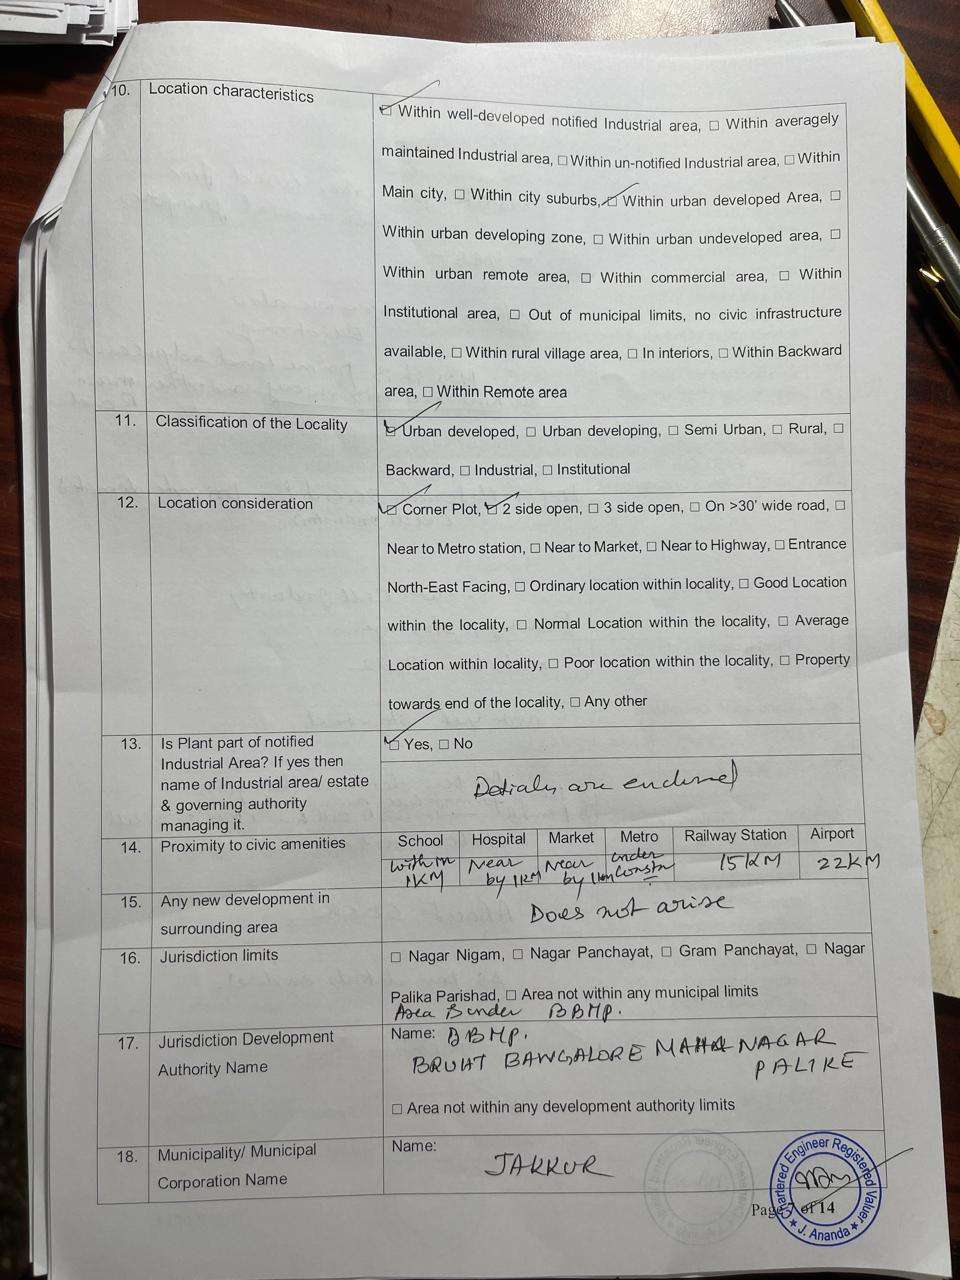 10. Location characteristics
☑ Within well-developed notified Industrial area, ☐ Within averagely
maintained Industrial area, ☐ Within un-notified Industrial area, ☐ Within
Main city, ☐ Within city suburbs, ☑ Within urban developed Area, ☐
Within urban developing zone, ☐ Within urban undeveloped area, ☐
Within urban remote area, ☐ Within commercial area, ☐ Within
Institutional area, ☐ Out of municipal limits, no civic infrastructure
available, ☐ Within rural village area, ☐ In interiors, ☐ Within Backward
area, ☐ Within Remote area
11. Classification of the Locality
☑ Urban developed, ☐ Urban developing, ☐ Semi Urban, ☐ Rural, ☐
Backward, ☐ Industrial, ☐ Institutional
12. Location consideration
☑ Corner Plot, ☑ 2 side open, ☐ 3 side open, ☐ On >30' wide road, ☐
Near to Metro station, ☐ Near to Market, ☐ Near to Highway, ☐ Entrance
North-East Facing, ☐ Ordinary location within locality, ☐ Good Location
within the locality, ☐ Normal Location within the locality, ☐ Average
Location within locality, ☐ Poor location within the locality, ☐ Property
towards end of the locality, ☐ Any other
13. Is Plant part of notified
Industrial Area? If yes then
name of Industrial area/ estate
& governing authority
managing it.
☑ Yes, ☐ No
Detials are enclosed
14. Proximity to civic amenities
School Hospital Market Metro Railway Station Airport
within Near Near under 15 KM 22KM
1KM by 1KM by 1km Constn
15. Any new development in
surrounding area
Does not arise
16. Jurisdiction limits
☐ Nagar Nigam, ☐ Nagar Panchayat, ☐ Gram Panchayat, ☐ Nagar
Palika Parishad, ☐ Area not within any municipal limits
Area BBMP.
17. Jurisdiction Development
Authority Name
Name: BBMP.
BRUHT BANGALORE MAHA NAGAR
PALIKE
☐ Area not within any development authority limits
18. Municipality/ Municipal
Corporation Name
Name:
JAKKUR
Chartered Engineer Registered Valuer
★ J. Ananda ★
Page 7 of 14